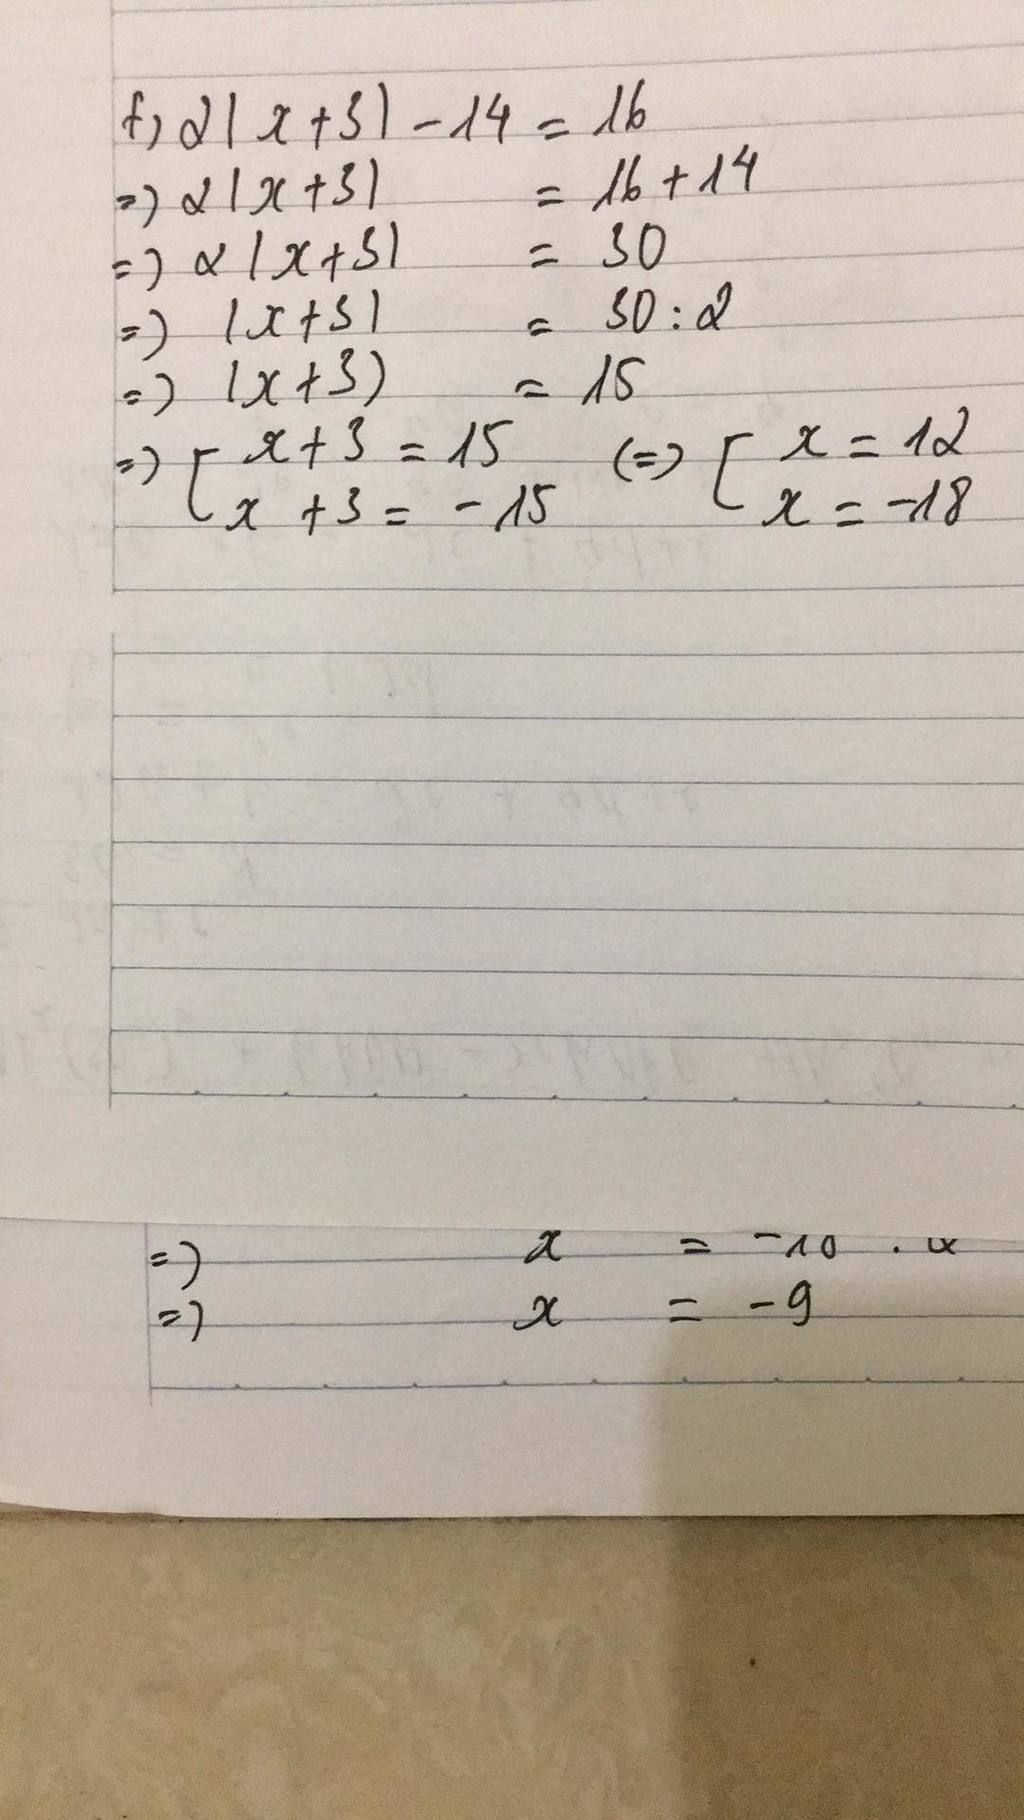 f) 2|x+3| - 14 = 16
=) 2|x+3| = 16 + 14
=) 2|x+3| = 30
=) |x+3| = 30 : 2
=) |x+3) = 15
=) [ x+3 = 15 (=) [ x = 12
x +3 = -15 x = -18
=) x =
=) x = -9